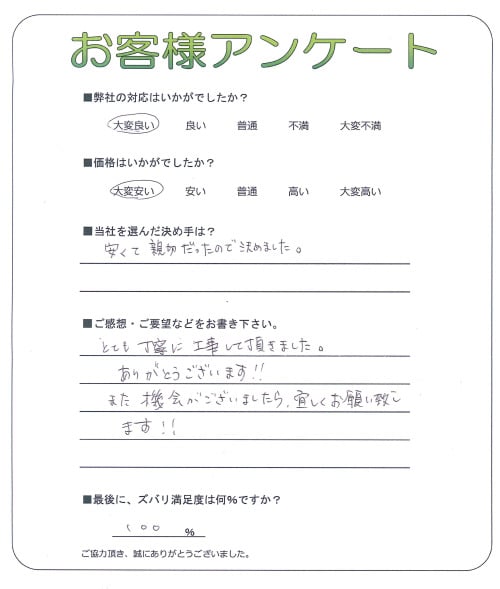 お客様アンケート
■弊社の対応はいかがでしたか？
大変良い 良い 普通 不満 大変不満
■価格はいかがでしたか？
大変安い 安い 普通 高い 大変高い
■当社を選んだ決め手は？
安くて親切だったので決めました。
■ご感想・ご要望などをお書き下さい。
とても丁寧に工事して頂きました。
ありがとうございます!!
また機会がございましたら、宜しくお願い致し
ます!!
■最後に、ズバリ満足度は何％ですか？
100 %
ご協力頂き、誠にありがとうございました。